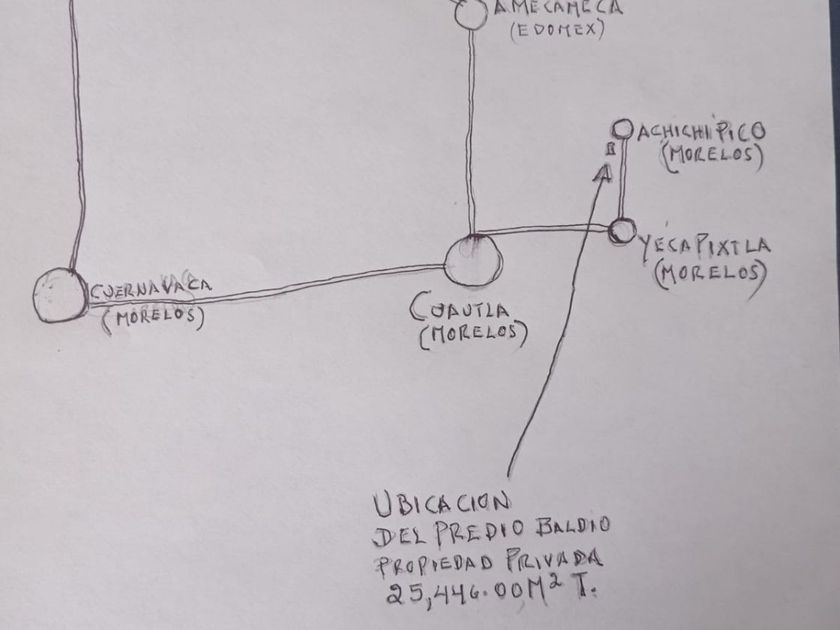 AMECAMECA
(EDOMEX)
ACHICHIPICO
(MORELOS)
YECAPIXTLA
(MORELOS)
CUERNAVACA
(MORELOS)
CUAUTLA
(MORELOS)
UBICACION
DEL PREDIO BALDIO
PROPIEDAD PRIVADA
25,446.00M² T.